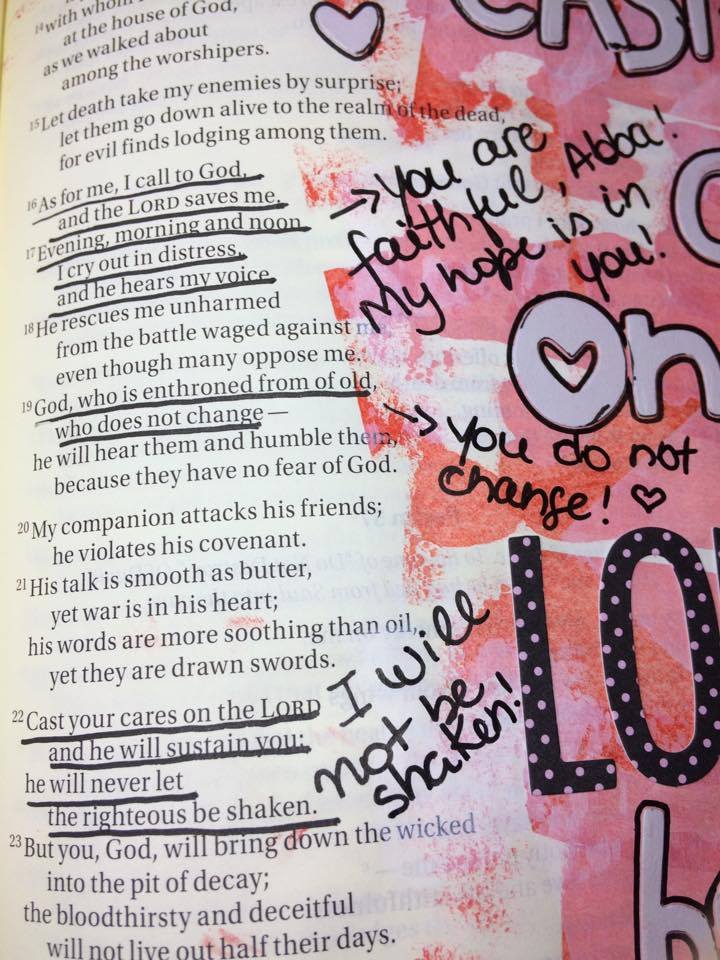 14with whom
at the house of God,
as we walked about
among the worshipers.
15Let death take my enemies by surprise;
let them go down alive to the realm of the dead,
for evil finds lodging among them.
16As for me, I call to God,
and the LORD saves me.
17Evening, morning and noon
I cry out in distress,
and he hears my voice.
18He rescues me unharmed
from the battle waged against me,
even though many oppose me.
19God, who is enthroned from of old,
who does not change—
he will hear them and humble them,
because they have no fear of God.
20My companion attacks his friends;
he violates his covenant.
21His talk is smooth as butter,
yet war is in his heart;
his words are more soothing than oil,
yet they are drawn swords.
22Cast your cares on the LORD
and he will sustain you;
he will never let
the righteous be shaken.
23But you, God, will bring down the wicked
into the pit of decay;
the bloodthirsty and deceitful
will not live out half their days.
You are
faithful, Abba!
My hope is in
you!
You do not
change!
I will
not be
shaken!
On
LO